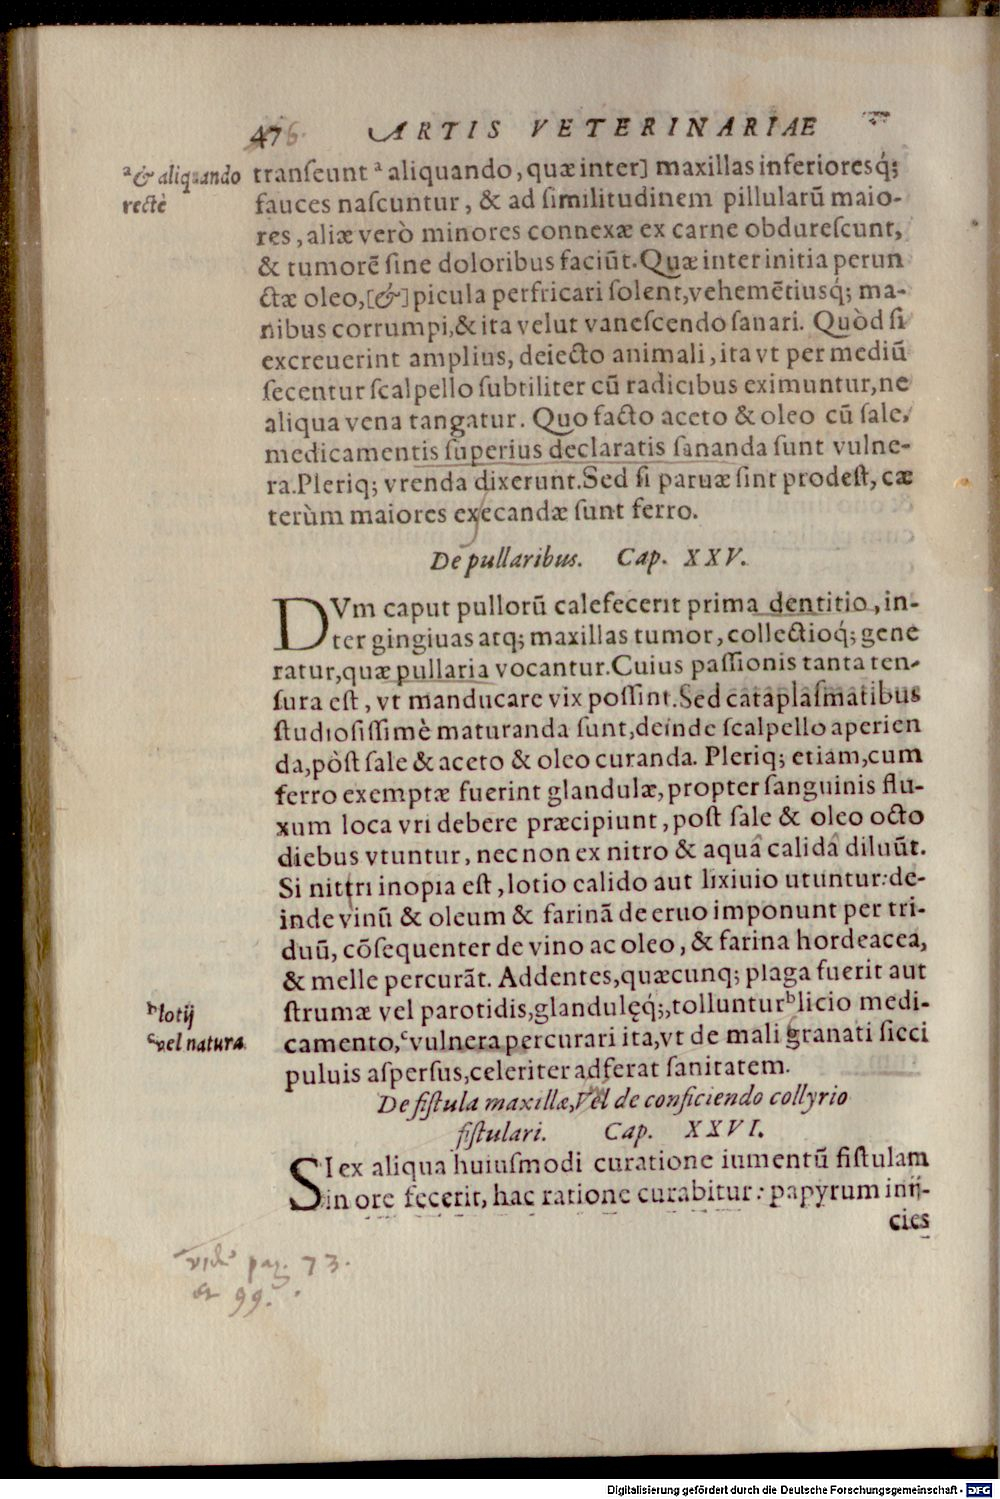 476. ARTIS VETERINARIAE
ª& aliquando
rectè
tranſeunt ª aliquando, quæ inter] maxillas inferioresq́;
fauces naſcuntur, & ad ſimilitudinem pillularũ maio-
res, aliæ verò minores connexæ ex carne obdureſcunt,
& tumorẽ ſine doloribus faciũt. Quæ inter initia perun
ctæ oleo, [&] picula perfricari ſolent, vehemẽtiusq́; ma-
nibus corrumpi, & ita velut vaneſcendo ſanari. Quòd ſi
excreuerint amplius, deiecto animali, ita vt per mediũ
ſecentur ſcalpello ſubtiliter cũ radicibus eximuntur, ne
aliqua vena tangatur. Quo facto aceto & oleo cũ ſale,
medicamentis ſuperius declaratis ſananda ſunt vulne-
ra. Pleriq; vrenda dixerunt. Sed ſi paruæ ſint prodeſt, cæ
terùm maiores execandæ ſunt ferro.
De pullaribus. Cap. XXV.
DVm caput pullorũ calefecerit prima dentitio, in-
ter gingiuas atq; maxillas tumor, collectioq́; gene
ratur, quæ pullaria vocantur. Cuius paſſionis tanta ten-
ſura eſt, vt manducare vix poſſint. Sed cataplaſmatibus
ſtudioſiſſimè maturanda ſunt, deinde ſcalpello aperien
da, pòſt ſale & aceto & oleo curanda. Pleriq; etiam, cum
ferro exemptæ fuerint glandulæ, propter ſanguinis flu-
xum loca vri debere præcipiunt, poſt ſale & oleo octo
diebus vtuntur, nec non ex nitro & aquâ calidâ diluũt.
Si nittri inopia eſt, lotio calido aut lixiuio utuntur: de-
inde vinũ & oleum & farinã de eruo imponunt per tri-
duũ, cõſequenter de vino ac oleo, & farina hordeacea,
& melle percurãt. Addentes, quæcunq; plaga fuerit aut
ᵇlotij
ſtrumæ vel parotidis, glandulęq́;, tolluntur ᵇlicio medi-
ᶜvel natura.
camento, ᶜvulnera percurari ita, vt de mali granati ſicci
puluis aſperſus, celeriter adferat ſanitatem.
De fiſtula maxillæ, Vel de conficiendo collyrio
fiſtulari. Cap. XXVI.
SI ex aliqua huiuſmodi curatione iumentũ fiſtulam
in ore fecerit, hac ratione curabitur: papyrum inij-
cies
vide pag. 73.
et 99.
Digitalisierung gefördert durch die Deutsche Forschungsgemeinschaft - DFG